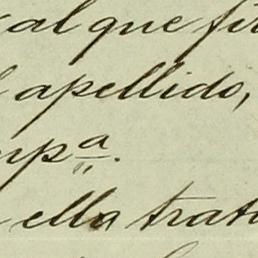 al que fir
apellido,
mpª.
ella trat